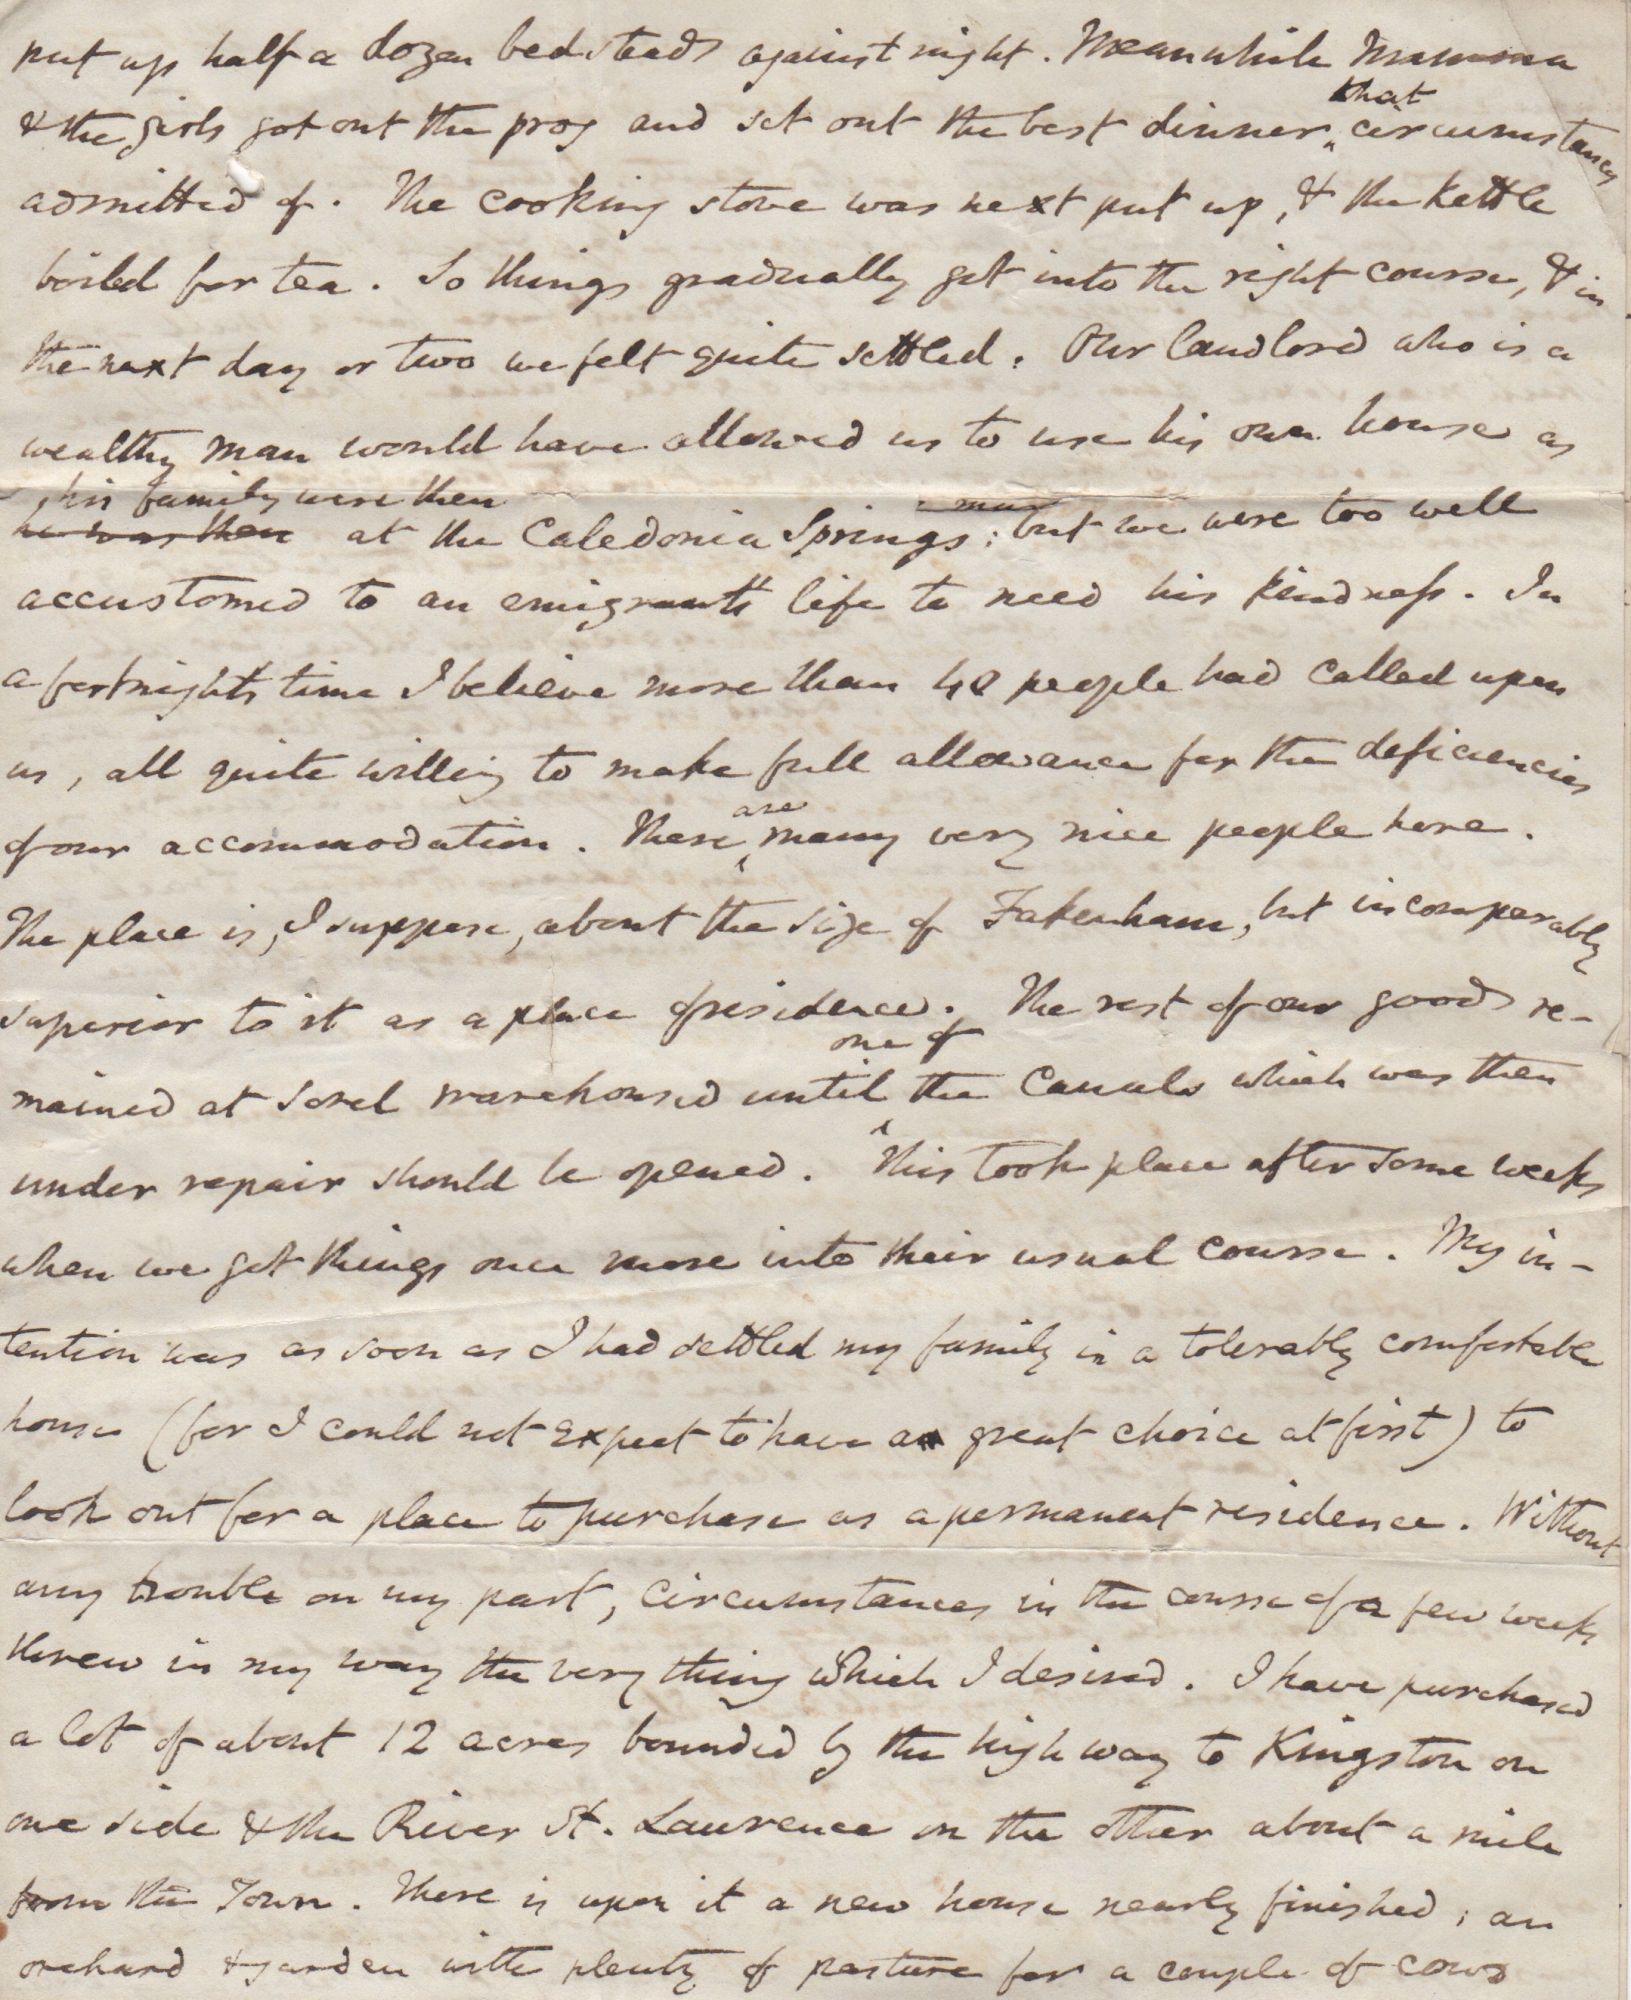 put up half a dozen bedsteads against night. Meanwhile Mamma
that
& the girls got out the prog and set out the best dinner circumstances
admitted of. The cooking stove was next put up, & the kettle
boiled for tea. So things gradually got into the right course, & in
the next day or two we felt quite settled. Our landlord who is a
wealthy man would have allowed us to use his own house as
his family were then
he was then at the Caledonia Springs; but we were too well
accustomed to an emigrant's life to need his kindness. In
a fortnight's time I believe more than 40 people had called upon
us, all quite willing to make full allowance for the deficiencies
are
of our accommodation. There many very nice people here.
The place is, I suppose, about the size of Fakenham, but incomparably
superior to it as a place of residence. The rest of our goods re-
one of
mained at Sorel warehoused until the Canals which was then
under repair should be opened. This took place after some weeks
when we got things once more into their usual course. My in-
tention was as soon as I had settled my family in a tolerably comfortable
house (for I could not expect to have a great choice at first) to
look out for a place to purchase as a permanent residence. Without
any trouble on my part, circumstances in the course of a few weeks
threw in my way the very thing which I desired. I have purchased
a lot of about 12 acres bounded by the high way to Kingston on
one side & the River St. Lawrence on the other about a mile
from the Town. There is upon it a new house nearly finished; an
orchard & garden with plenty of pasture for a couple of cows